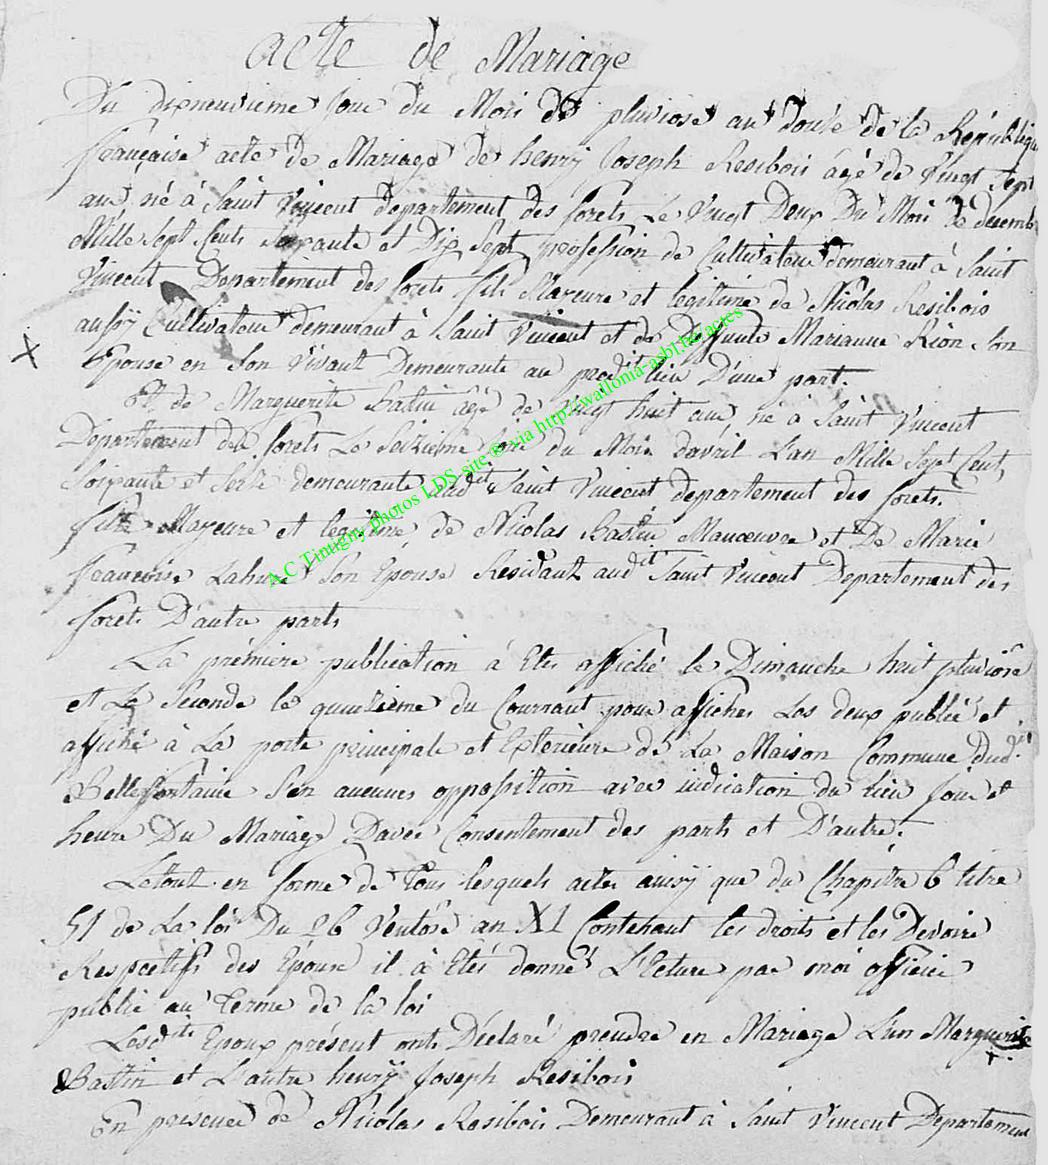 acte de Mariage
Du dixneuvieme Jour du Mois de pluviose an douse de la Républiqu
française acte de Mariage de henry Joseph Resibois agé de Vingt Sept
ans né à Saint Vincent departement des forets Le Vingt Deux Du Mois de decemb
Mille Sept Cents Soixante et Dix Sept profession de Cultivateur demeurant à Saint
Vincent Departement des forets fils Mayeure et legitime de Nicolas Resibois
aussy Cultivateur demeurant à Saint Vincent et de Defunte Marianne Rion Son
Epouse en Son Vivant Demeurante au predit lieu D'une part.
Et de Marguerite Bastin agé de Vingt huit ans né à Saint Vincent
Departement des forets Le Seizieme Jour du Mois d'avril L'an Mille Sept Cent
Soixante et Seise demeurante audit Saint Vincent departement des forets.
fille Mayeure et legitime de Nicolas Bastin Manoeuvre et De Marie
francoise Lahure Son Epouse Residant audit Saint Vincent Departement des
forets D'autre parts
La prémiere publication à Etes affiché le Dimanche huit pluviose
et Le Seconde le quinzieme du Courrant pour affiches Les deux publié et
affiché à La porte principale et Exterieure de La Maison Commune dudit
Bellefontaine S'en aucunes opposition avec indication du Lieu Jour et
heure Du Mariage Davec Consentement des parts et D'autre.
Letout en forme de Tous lesquels actes aussy que du Chapitre 6 titre
51 de La loi Du 26 Ventôse an XI Contenant les droits et les Devoirs
Respectifs des Epoux il à Etés donné L'Ecture par moi officié
publié au Terme de la loi
Lesdits Epoux présent onts Déclaré prendre en Mariage L'un Marguerite
Bastin et L'autre henrÿ Joseph Resibois
En presence de Nicolas Resibois Demeurant à Saint Vincent Departement
X
A.C Tintigny photos LDS site ® via http://wallonia-asbl.be/actes